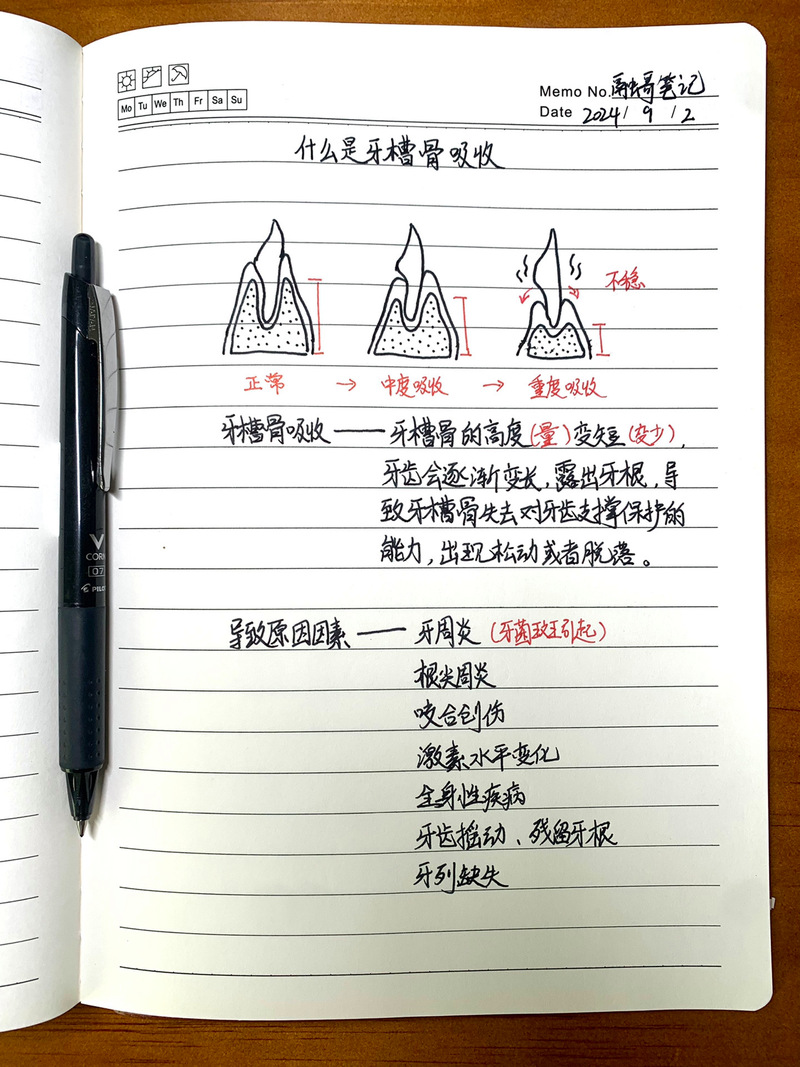 Mo Tu We Th Fr Sa Su
Memo No. 融哥笔记
Date 2024/9/2
什么是牙槽骨吸收
不稳
正常 → 中度吸收 → 重度吸收
牙槽骨吸收——牙槽骨的高度(量)变短(变少),
牙齿会逐渐变长,露出牙根,导
致牙槽骨失去对牙齿支撑保护的
能力,出现松动或者脱落。
导致原因因素——牙周炎(牙菌斑引起)
根尖周炎
咬合创伤
激素水平变化
全身性疾病
牙齿摇动、残留牙根
牙列缺失
07
PILOT